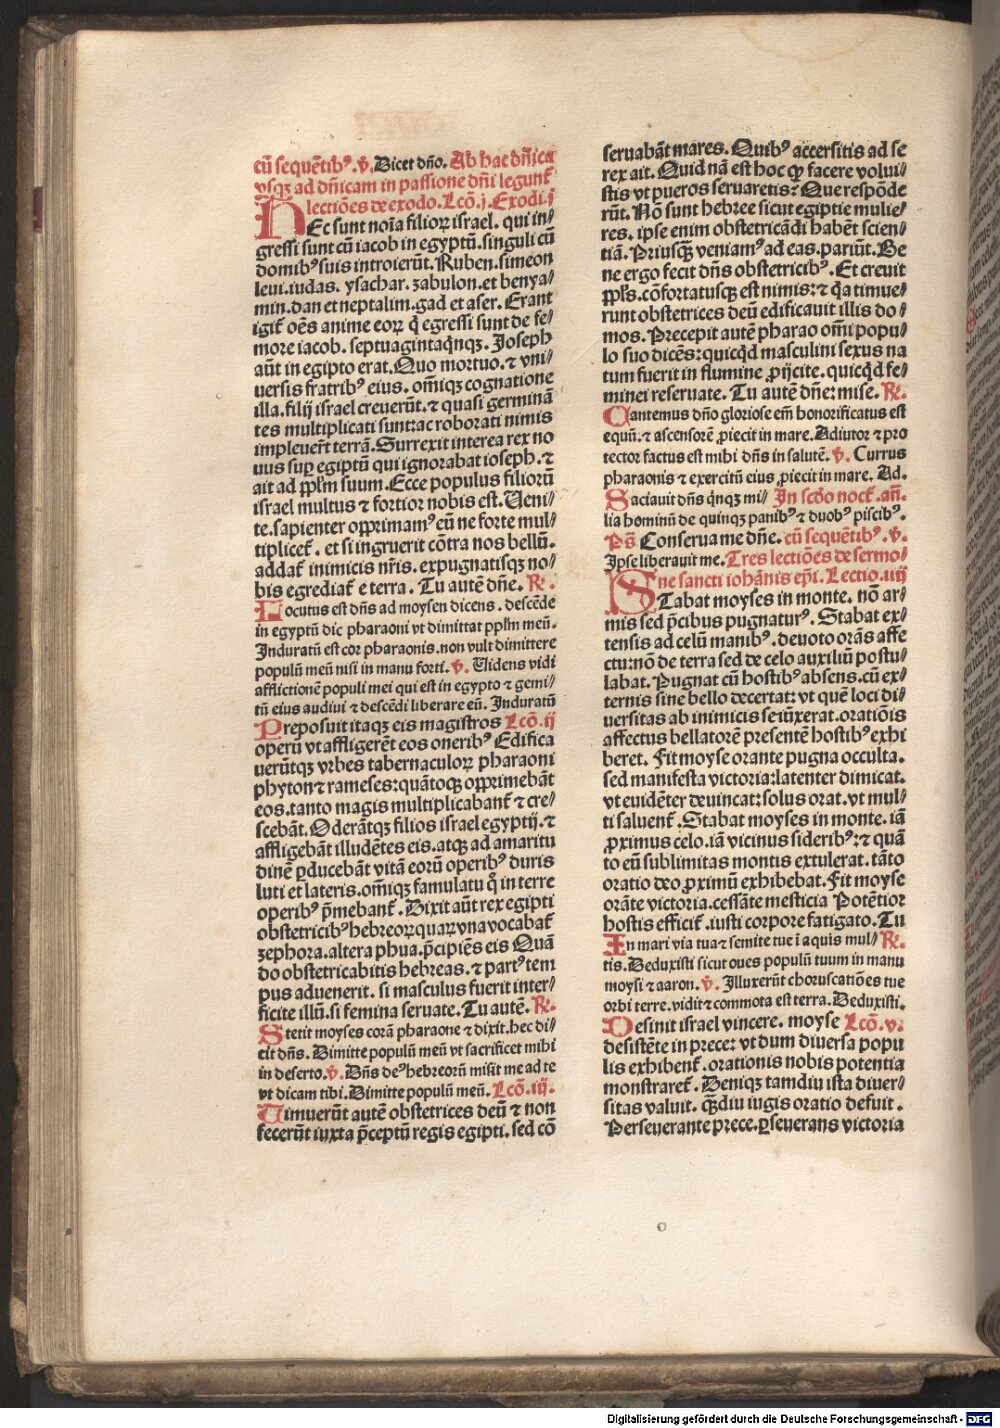 cū sequētibꝰ. ℣. Dicet dño. Ab hac dñica
vsqꝫ ad dñicam in passione dñi legunt̄
lectiōes de exodo. Lcō. j. Exodi. j
HEc sunt noīa filioꝝ israel. qui in⸗
gressi sunt cū iacob in egyptū. singuli cū
domibꝰ suis introierūt. Ruben. simeon
leui. iudas. ysachar. zabulon. et benya⸗
min. dan et neptalim. gad et aser. Erant
igit̄ oēs anime eoꝝ q̄ egressi sunt de fe⸗
more iacob. septuagintaqͥnqꝫ. Joseph
aūt in egipto erat. Quo mortuo. ⁊ vni⸗
uersis fratribꝰ eius. om̄iqꝫ cognatione
illa. filij israel creuerūt. ⁊ quasi germinā
tes multiplicati sunt: ac roborati nimis
impleuert̄ terrā. Surrexit interea rex no
uus suꝑ egiptū qui ignorabat ioseph. ⁊
ait ad pplm̄ suum. Ecce populus filiorū
israel multus ⁊ fortior nobis est. Veni⸗
te. sapienter opprimamꝰ eū ne forte mul⸗
tiplicet̄. et si ingruerit cōtra nos bellū.
addat̄ inimicis nr̄is. expugnatisqꝫ no⸗
bis egrediat̄ e terra. Tu autē dñe. ℟.
Locutus est dñs ad moysen dicens. descēde
in egyptū dic pharaoni vt dimittat pplm̄ meū.
Induratū est cor pharaonis. non vult dimittere
populū meū nisi in manu forti. ℣. Uidens vidi
afflictionē populi mei qui est in egypto ⁊ gemi⸗
tū eius audiui ⁊ descēdi liberare eū. Induratū
Preposuit itaqꝫ eis magistros Lcō. ij
operū vt affligerēt eos oneribꝰ Edifica
uerūtqꝫ vrbes tabernaculoꝝ pharaoni
phyton ⁊ rameses: quātoqꝫ opprimebāt
eos. tanto magis multiplicabant̄ ⁊ cre⸗
scebāt. Oderātqꝫ filios israel egyptij. ⁊
affligebāt illudētes eis. atqꝫ ad amaritu
dinē ꝑducebāt vitā eorū operibꝰ duris
luti et lateris. om̄iqꝫ famulatu qͦ in terre
operibꝰ p̄mebant̄. Dixit aūt rex egipti
obstetricibꝰ hebreoꝝ quaꝝ vna vocabat̄
zephora. altera phua. p̄cipiēs eis Quā
do obstetricabitis hebreas. ⁊ partꝰ tem
pus aduenerit. si masculus fuerit inter⸗
ficite illū. si femina seruate. Tu autē. ℟.
Stetit moyses corā pharaone ⁊ dixit. hec di⸗
cit dñs. Dimitte populū meū vt sacrificet mihi
in deserto. ℣. Dñs deꝰ hebreorū misit me ad te
vt dicam tibi. Dimitte populū meū. Lcō. iij.
Timuerūt autē obstetrices deū ⁊ non
fecerūt iuxta p̄ceptū regis egipti. sed cō
seruabāt mares. Quibꝰ accersitis ad se
rex ait. Quid nā est hoc qꝙ facere volui⸗
stis vt pueros seruaretis? Que respōde
rūt. Nō sunt hebree sicut egiptie mulie⸗
res. ipse enim obstetricādi habēt scien⸗
tiā. Priusqꝫ veniamꝰ ad eas. pariūt. Be
ne ergo fecit dñs obstetricibꝰ. Et creuit
ppl̄s. cōfortatusqꝫ est nimis: ⁊ qͥa timue⸗
runt obstetrices deū edificauit illis do⸗
mos. Precepit autē pharao om̄i popu⸗
lo suo dicēs: quicqͥd masculini sexus na
tum fuerit in flumine ꝓijcite. quicqͥd fe⸗
minei reseruate. Tu autē dñe: mise. ℟.
Cantemus dño gloriose em̄ honorificatus est
equū. ⁊ ascensorē ꝓiecit in mare. Adiutor ⁊ pro
tector factus est mihi dñs in salutē. ℣. Currus
pharaonis ⁊ exercitū eius ꝓiecit in mare. Ad.
Saciauit dñs qͥnqꝫ mi⸗ In scd̄o noct̄. añ.
lia hominū de quinqꝫ panibꝰ ⁊ duobꝰ piscibꝰ.
Ps̄ Conserua me dñe. cū sequētibꝰ. ℣.
Ipse liberauit me. Tres lectiōes de sermo⸗
ne sancti iohānis ep̄i. Lectio. iiij
STabat moyses in monte. nō ar⸗
mis sed p̄cibus pugnaturꝰ. Stabat ex⸗
tensis ad celū manibꝰ. deuoto orās affe
ctu: nō de terra sed de celo auxiliū postu⸗
labat. Pugnat cū hostibꝰ absens. cū ex⸗
ternis sine bello decertat: vt quē loci di⸗
uersitas ab inimicis seiūxerat. oratiōis
affectus bellatorē presentē hostibꝰ exhi
beret. Fit moyse orante pugna occulta.
sed manifesta victoria: latenter dimicat.
vt euidēter deuincat: solus orat. vt mul⸗
ti saluent̄. Stabat moyses in monte. iā
ꝓximus celo. iā vicinus sideribꝰ: ⁊ quā
to eū sublimitas montis extulerat. tāto
oratio deo ꝓximū exhibebat. Fit moyse
orāte victoria. cessāte mesticia Potētior
hostis efficit̄. iusti corpore fatigato. Tu
In mari via tua ⁊ semite tue ī aquis mul⸗ ℟.
tis. Deduxisti sicut oues populū tuum in manu
moysi ⁊ aaron. ℣. Illuxerūt choruscatiōes tue
orbi terre. vidit ⁊ commota est terra. Deduxisti.
Desinit israel vincere. moyse Lcō. v.
desistēte in prece: vt dum diuersa popu
lis exhibent̄. orationis nobis potentia
monstraret̄. Deniqꝫ tamdiu ista diuer⸗
sitas valuit. qꝫdiu iugis oratio defuit.
Perseuerante prece. ꝑseuerans victoria
Digitalisierung gefördert durch die Deutsche Forschungsgemeinschaft - DFG